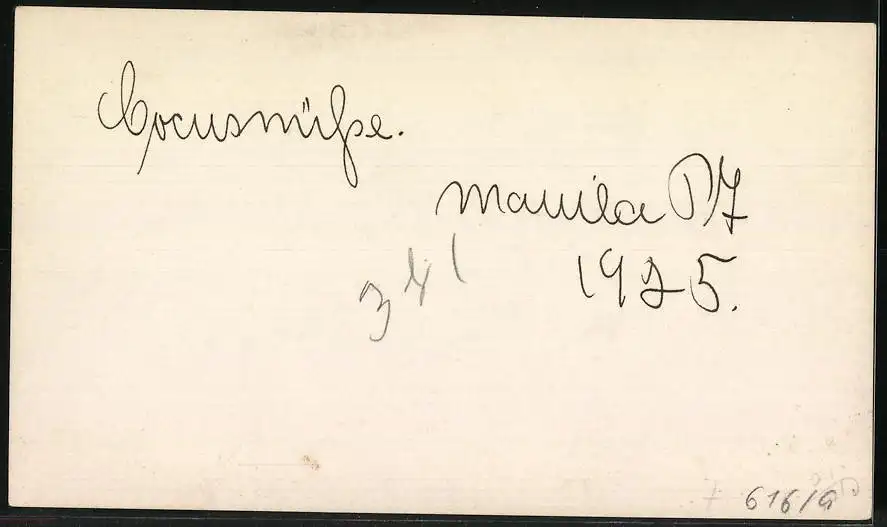 Cocusnüße.
Manila PI
1925.
341
616/9